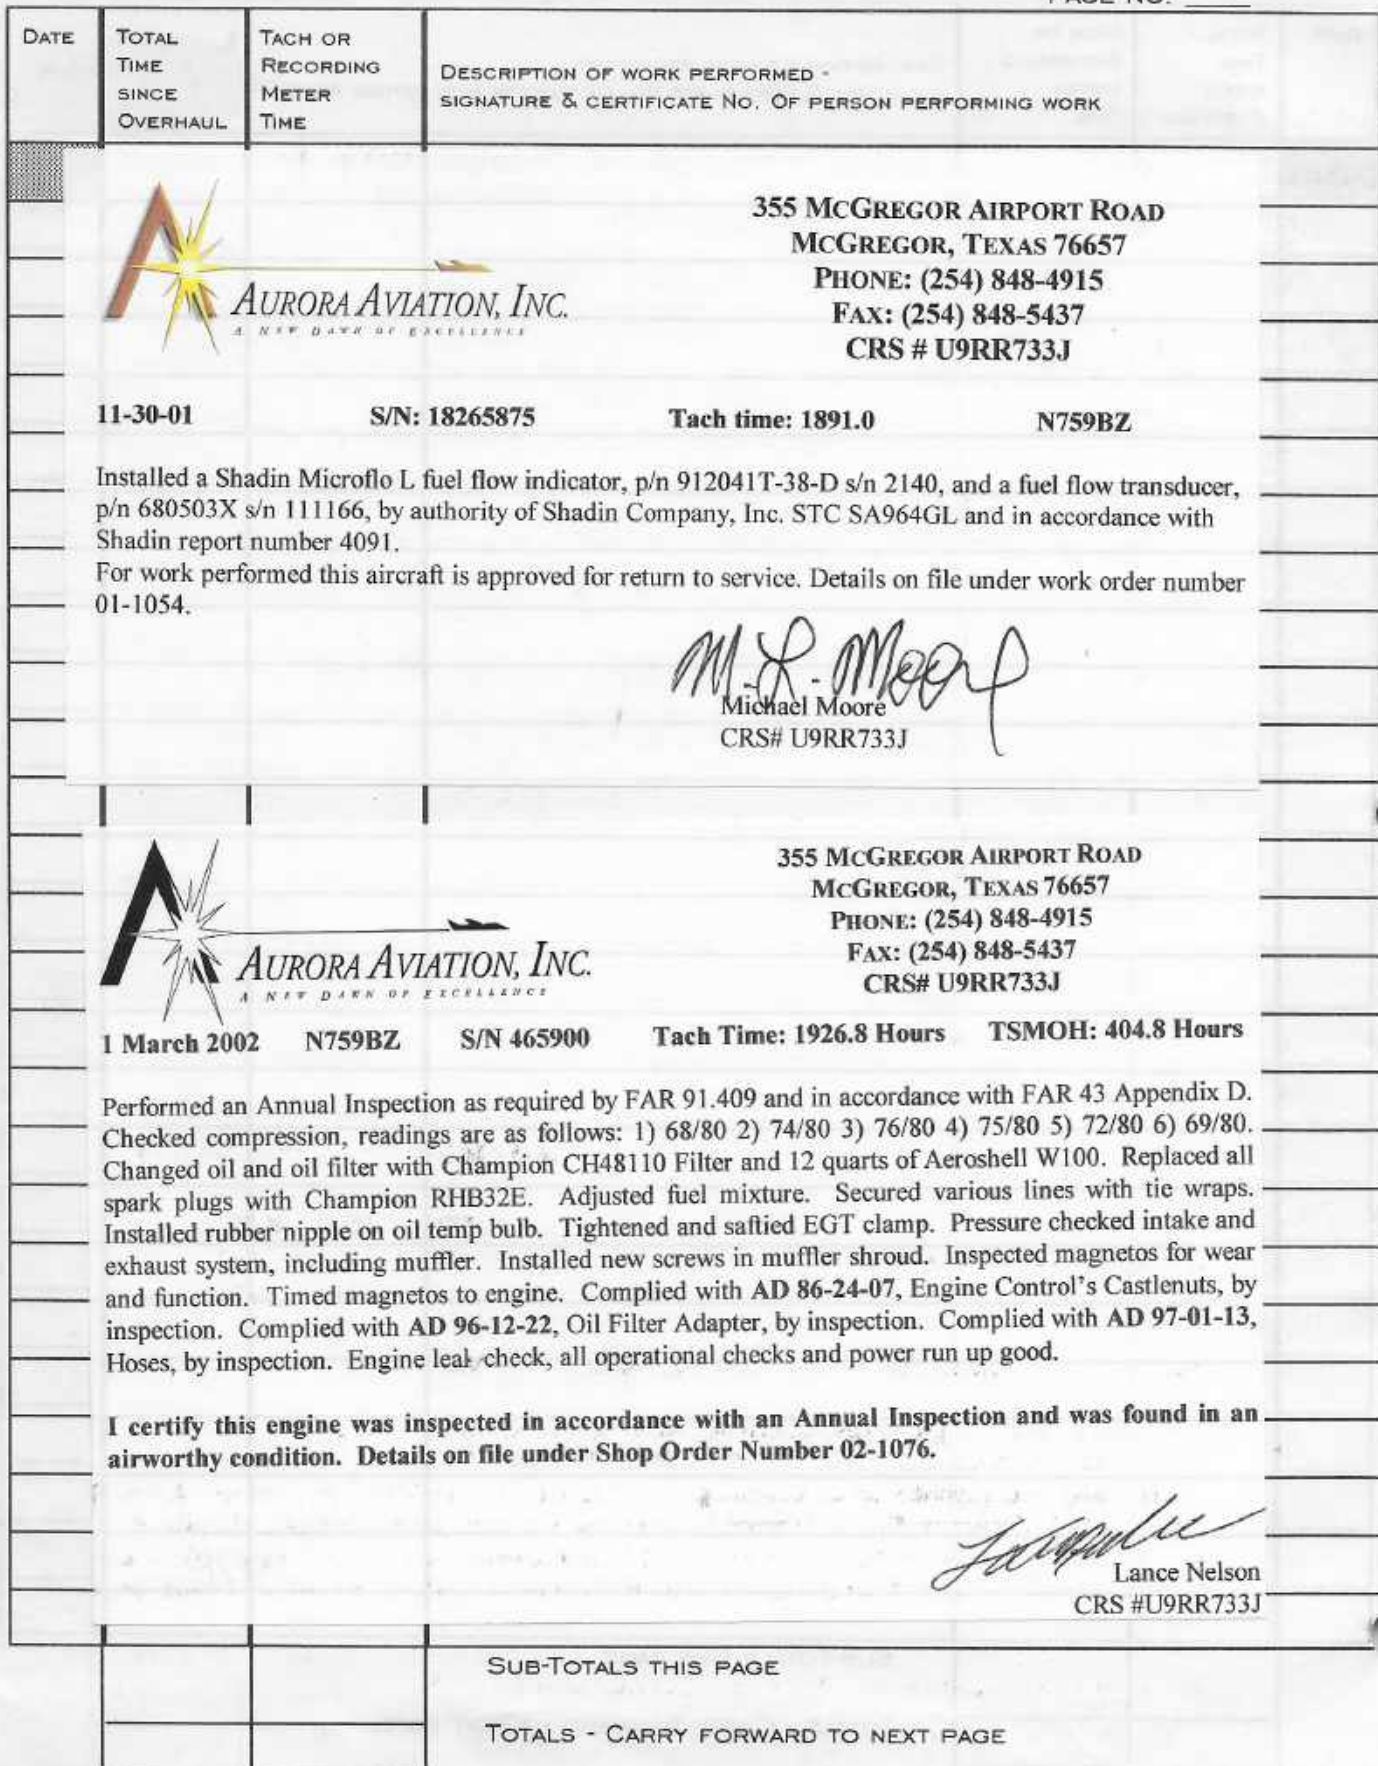 PAGE NO. ____
DATE
TOTAL
TIME
SINCE
OVERHAUL
TACH OR
RECORDING
METER
TIME
DESCRIPTION OF WORK PERFORMED -
SIGNATURE & CERTIFICATE NO. OF PERSON PERFORMING WORK
AURORA AVIATION, INC.
A NEW DAWN OF EXCELLENCE
355 MCGREGOR AIRPORT ROAD
MCGREGOR, TEXAS 76657
PHONE: (254) 848-4915
FAX: (254) 848-5437
CRS # U9RR733J
11-30-01 S/N: 18265875 Tach time: 1891.0 N759BZ
Installed a Shadin Microflo L fuel flow indicator, p/n 912041T-38-D s/n 2140, and a fuel flow transducer,
p/n 680503X s/n 111166, by authority of Shadin Company, Inc. STC SA964GL and in accordance with
Shadin report number 4091.
For work performed this aircraft is approved for return to service. Details on file under work order number
01-1054.
M. L. Moore
Michael Moore
CRS# U9RR733J
AURORA AVIATION, INC.
A NEW DAWN OF EXCELLENCE
355 MCGREGOR AIRPORT ROAD
MCGREGOR, TEXAS 76657
PHONE: (254) 848-4915
FAX: (254) 848-5437
CRS# U9RR733J
1 March 2002 N759BZ S/N 465900 Tach Time: 1926.8 Hours TSMOH: 404.8 Hours
Performed an Annual Inspection as required by FAR 91.409 and in accordance with FAR 43 Appendix D.
Checked compression, readings are as follows: 1) 68/80 2) 74/80 3) 76/80 4) 75/80 5) 72/80 6) 69/80.
Changed oil and oil filter with Champion CH48110 Filter and 12 quarts of Aeroshell W100. Replaced all
spark plugs with Champion RHB32E. Adjusted fuel mixture. Secured various lines with tie wraps.
Installed rubber nipple on oil temp bulb. Tightened and saftied EGT clamp. Pressure checked intake and
exhaust system, including muffler. Installed new screws in muffler shroud. Inspected magnetos for wear
and function. Timed magnetos to engine. Complied with AD 86-24-07, Engine Control's Castlenuts, by
inspection. Complied with AD 96-12-22, Oil Filter Adapter, by inspection. Complied with AD 97-01-13,
Hoses, by inspection. Engine leak check, all operational checks and power run up good.
I certify this engine was inspected in accordance with an Annual Inspection and was found in an
airworthy condition. Details on file under Shop Order Number 02-1076.
Lance Nelson
CRS #U9RR733J
SUB-TOTALS THIS PAGE
TOTALS - CARRY FORWARD TO NEXT PAGE